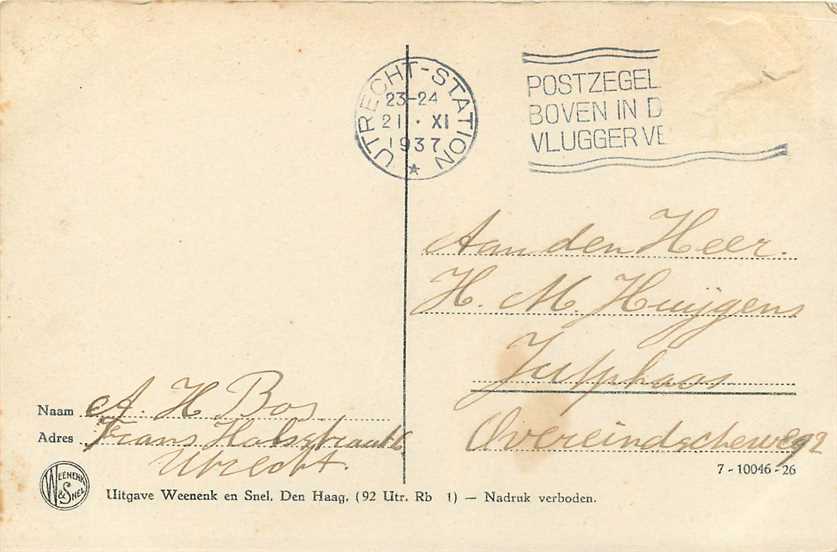 UTRECHT-STATION
23-24
21 · XI
1937
POSTZEGEL
BOVEN IN D
VLUGGER VE
Aan den Heer.
H. M. Huijgens
Jutphaas
Overeindscheweg 2
Naam A. H Bos
Adres Frans Halsstraat 16
Utrecht.
7 - 10046 - 26
WEENENK & SNEL
Uitgave Weenenk en Snel, Den Haag. (92 Utr. Rb 1) — Nadruk verboden.